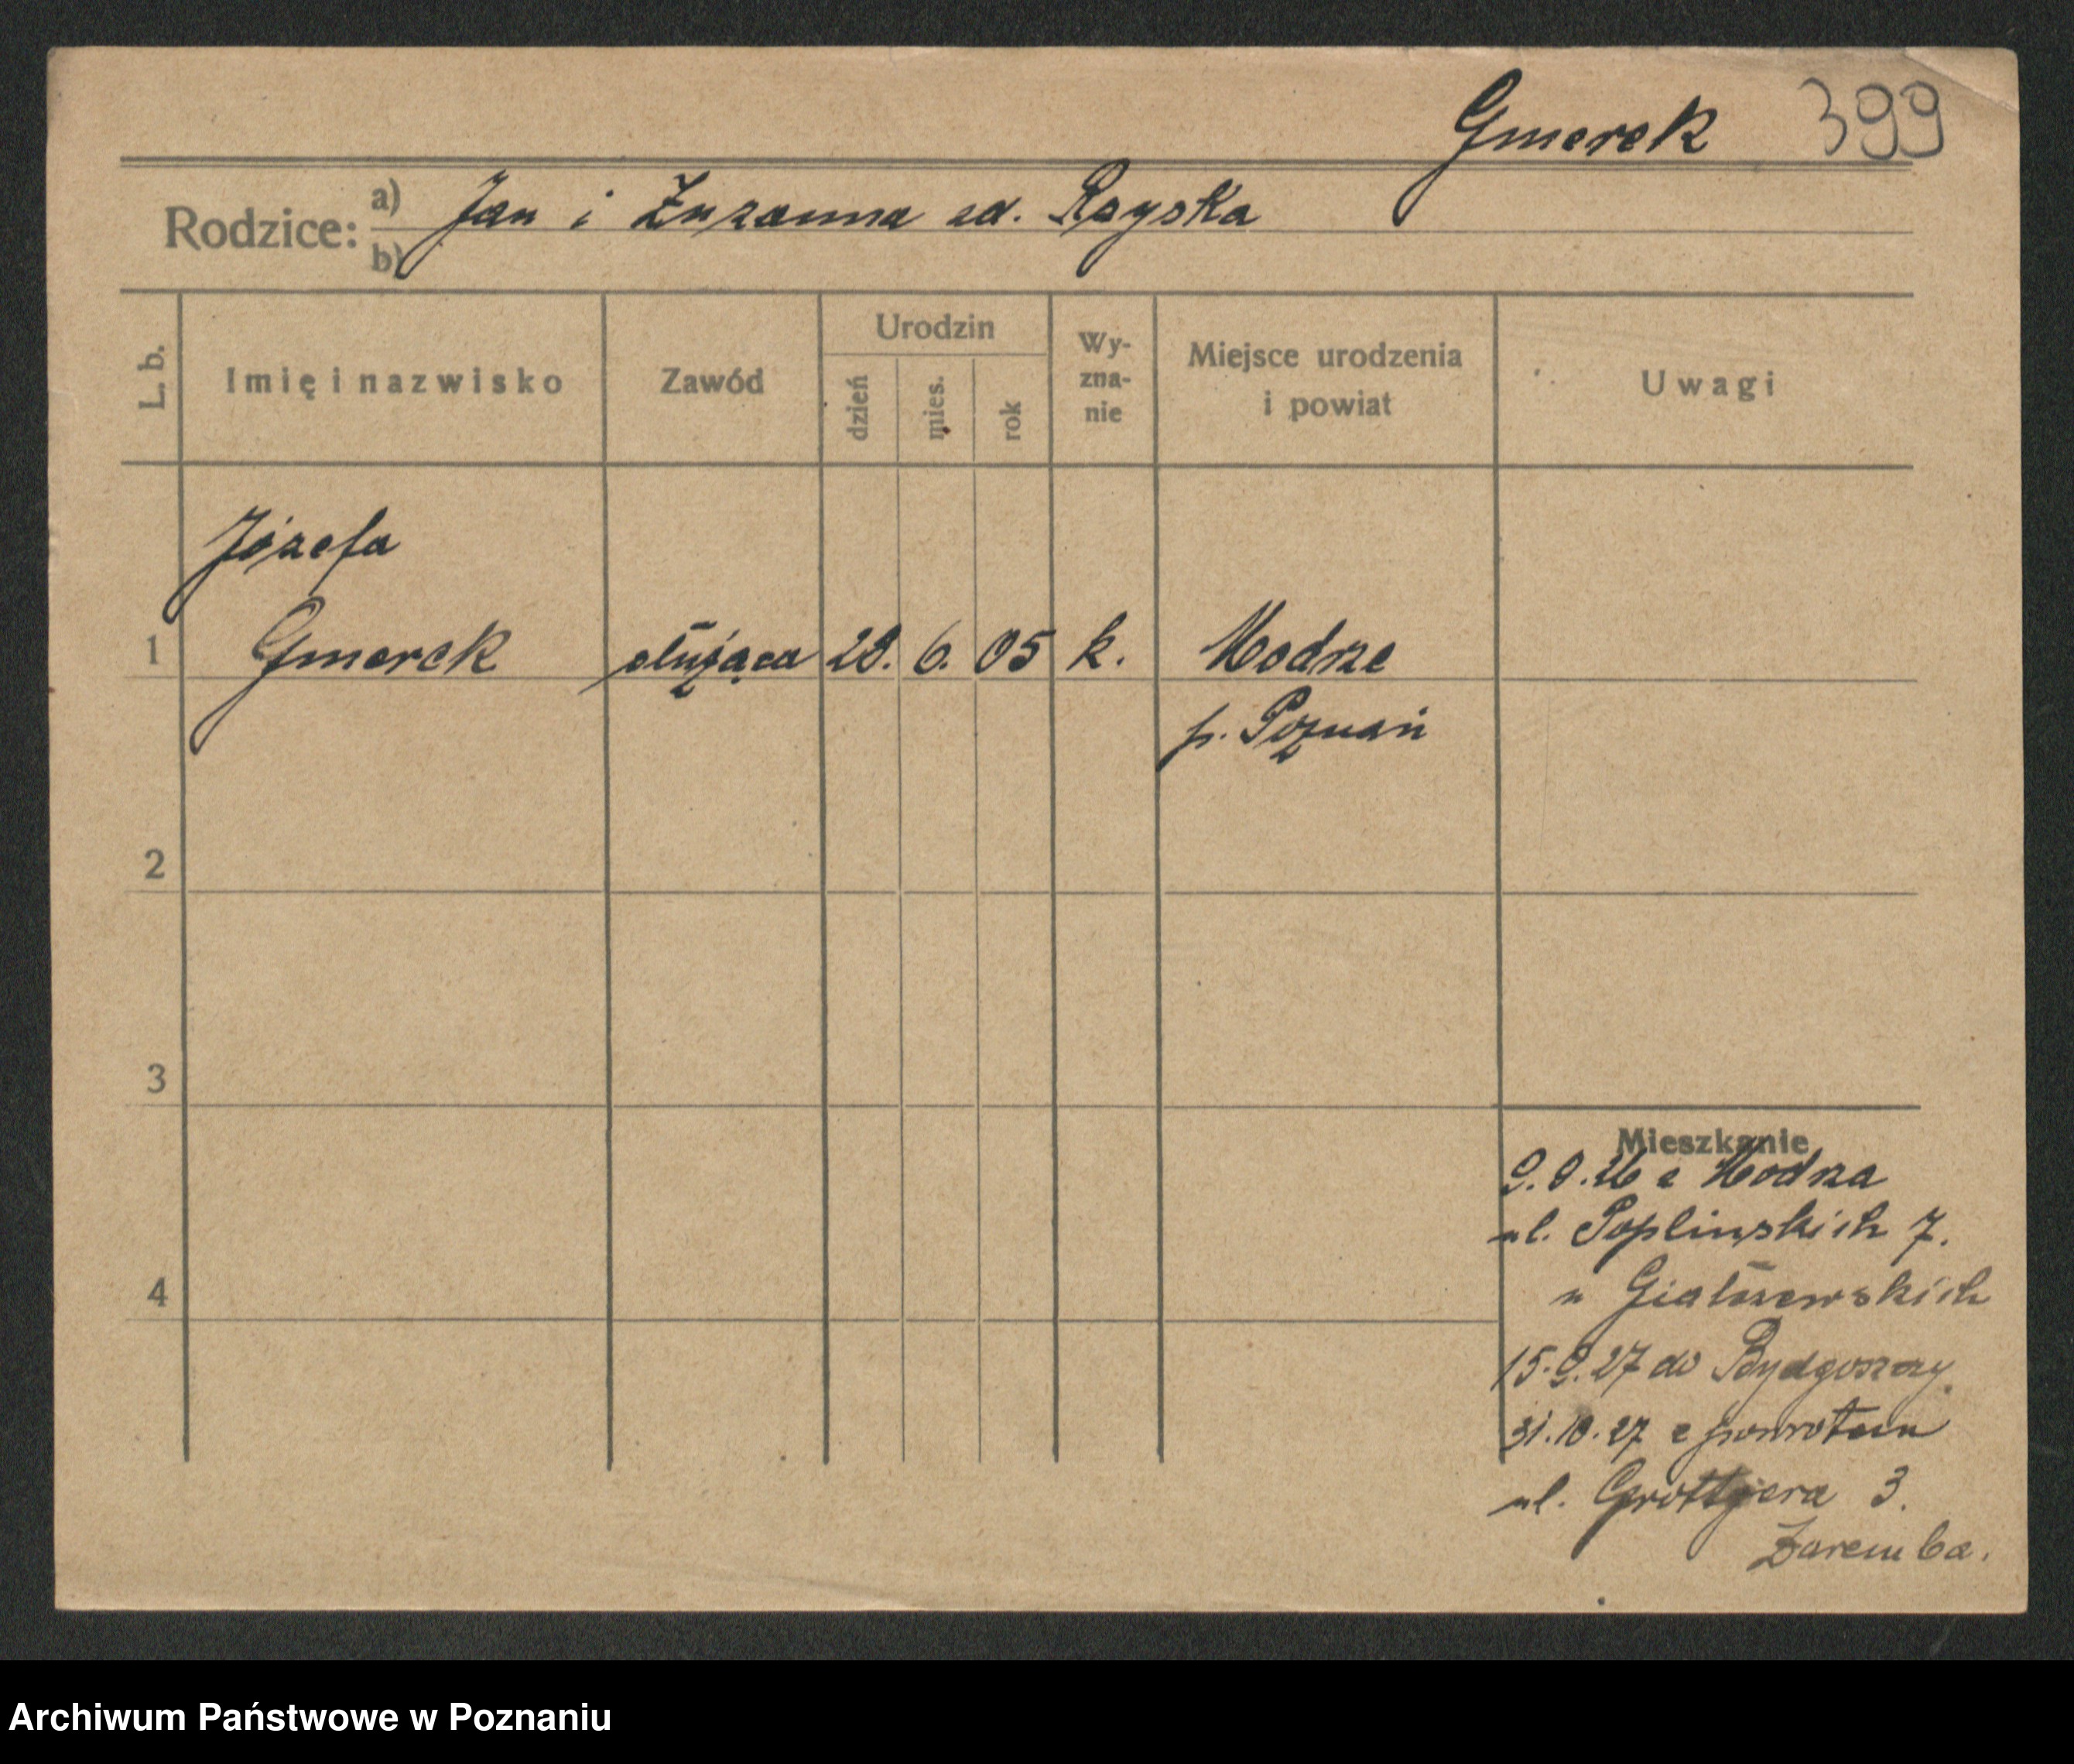 Gmerek 399
Rodzice: a) Jan i Zuzanna zd. Rzyska
b)
L. b. Imię i nazwisko Zawód Urodzin dzień mies. rok Wyzna-nie Miejsce urodzenia i powiat Uwagi
Józefa
1 Gmerek służąca 28. 6. 05 k. Modrze
p. Poznań
2
3
Mieszkanie
9.9.26 z Modrza
ul. Poplinskich 7.
4 u Giałszewskich
15.9.27 do Bydgoszczy
31.10.27 z powrotem
ul. Grottgera 3.
Zaremba.
Archiwum Państwowe w Poznaniu